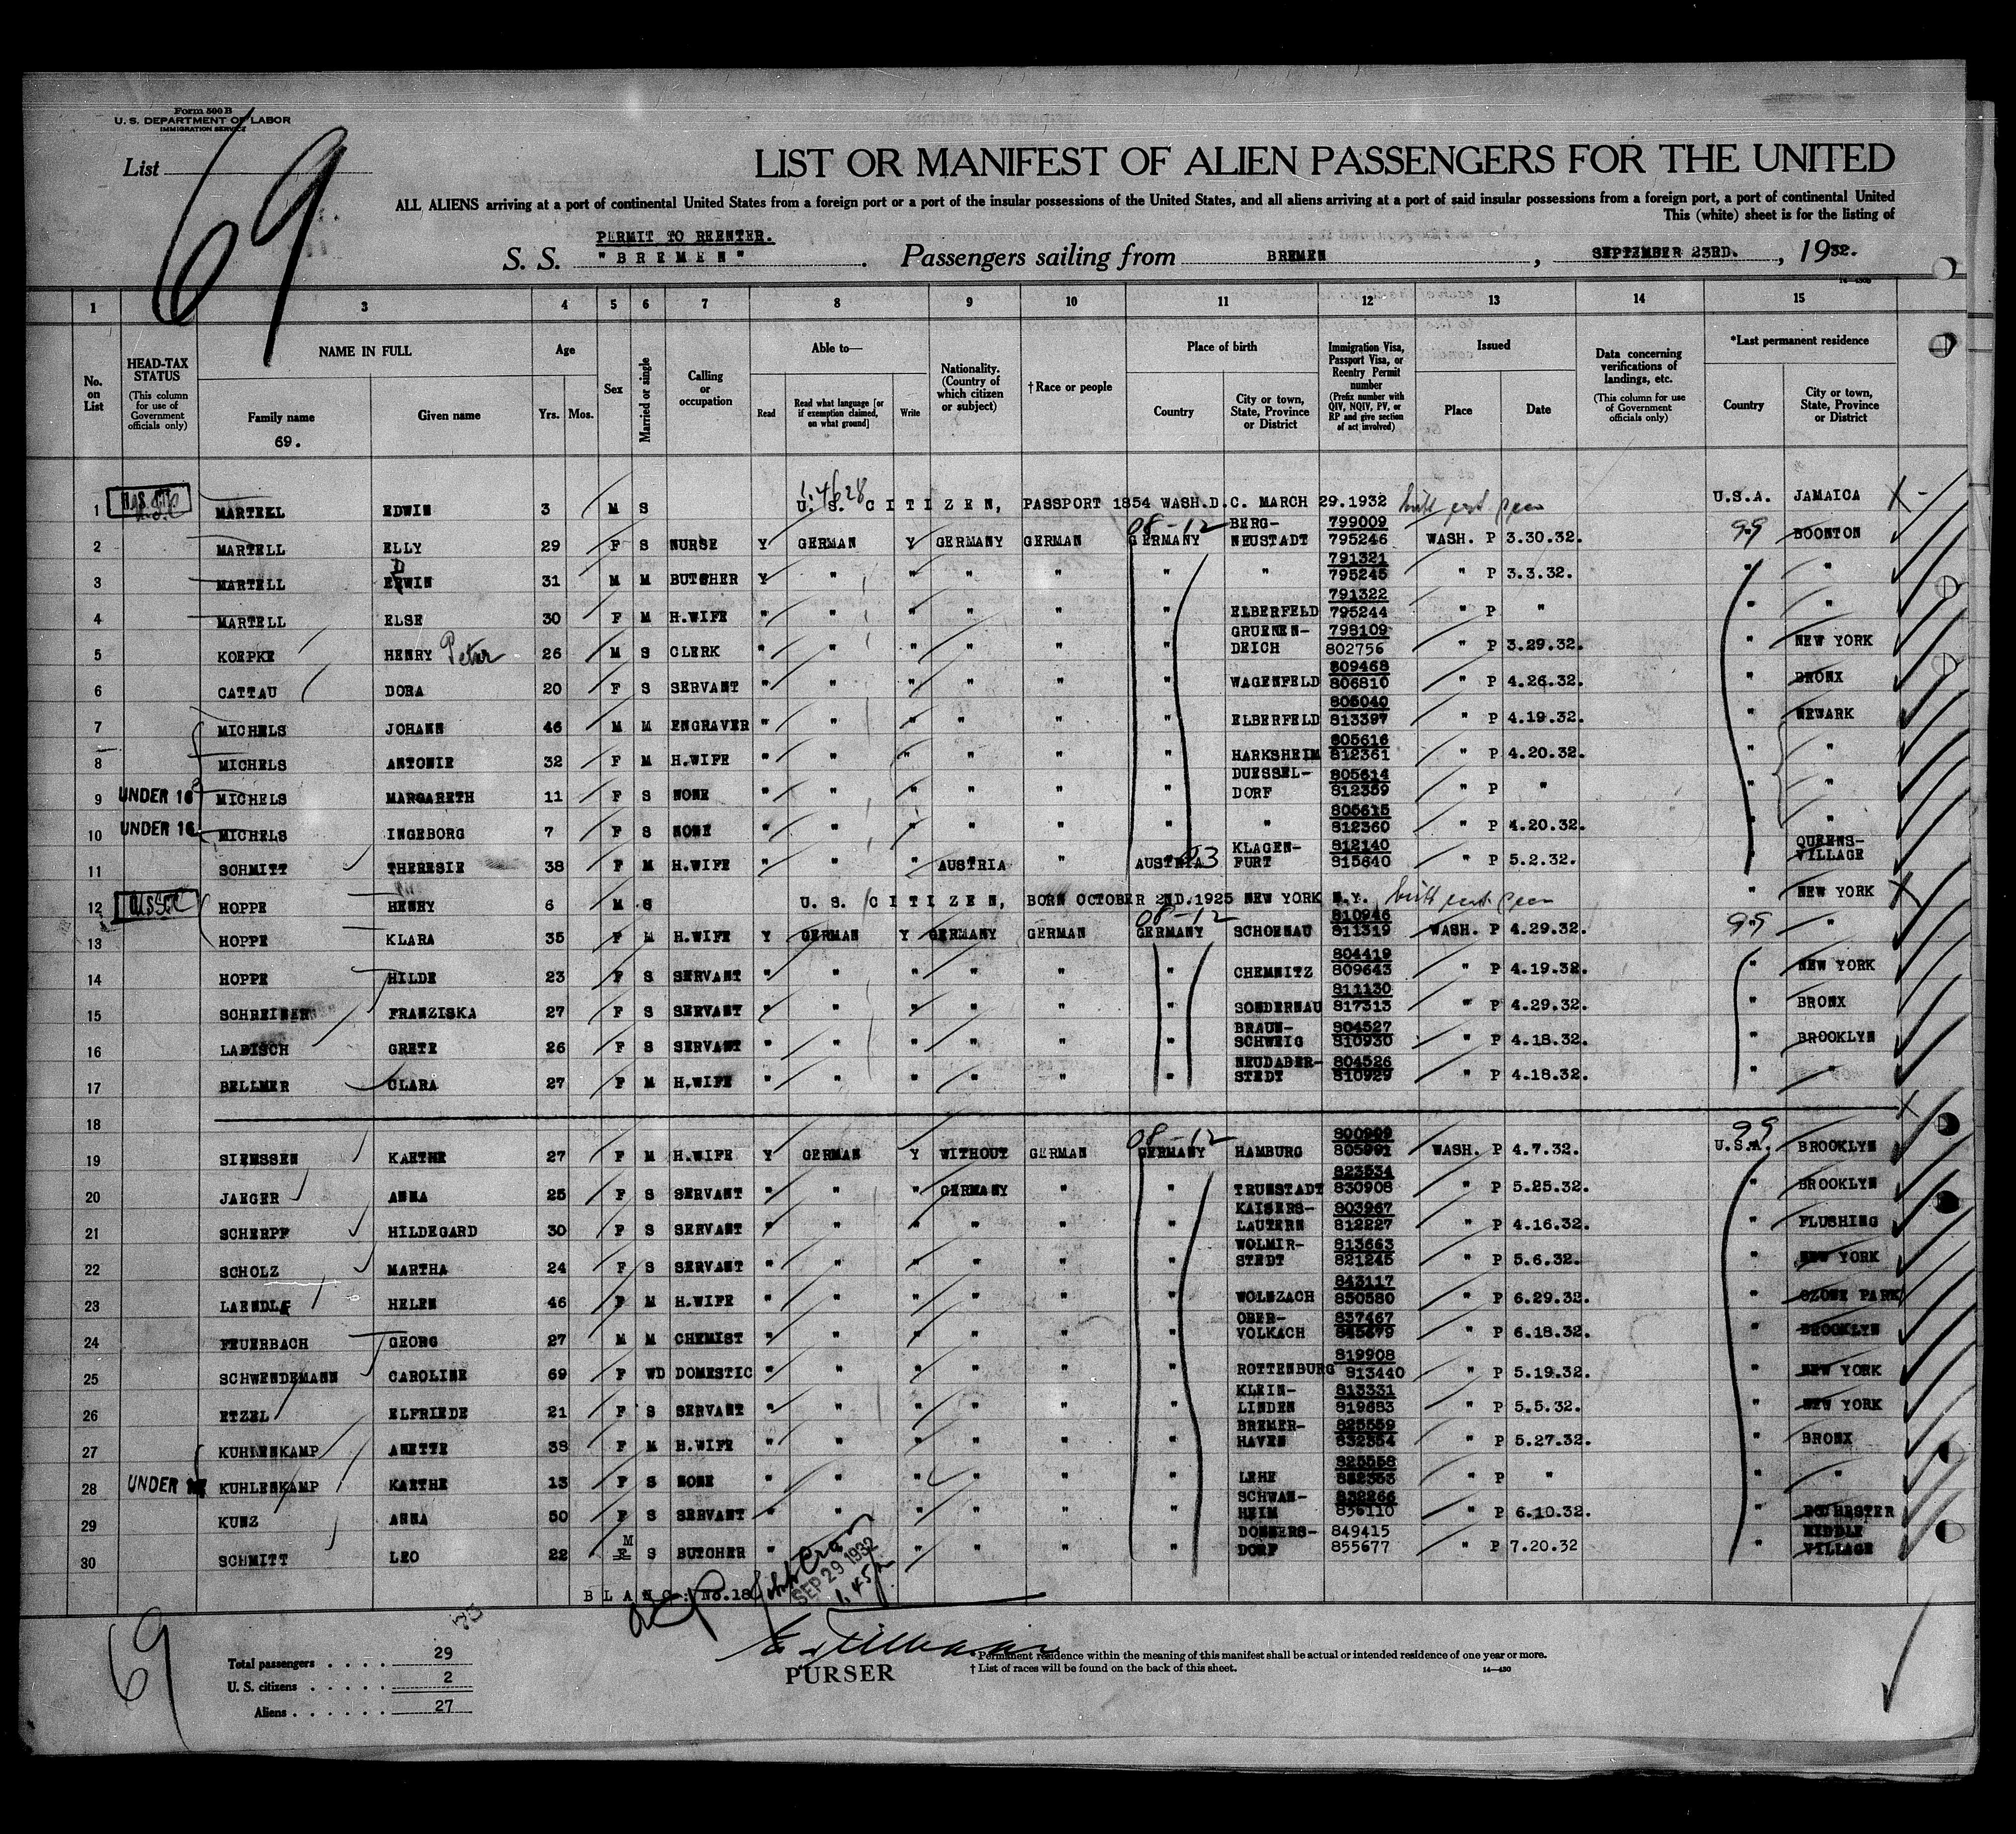 Form 500 B
U. S. DEPARTMENT OF LABOR
IMMIGRATION SERVICE
List
69
LIST OR MANIFEST OF ALIEN PASSENGERS FOR THE UNITED
ALL ALIENS arriving at a port of continental United States from a foreign port or a port of the insular possessions of the United States, and all aliens arriving at a port of said insular possessions from a foreign port, a port of continental United
This (white) sheet is for the listing of
PERMIT TO REENTER.
S. S. "BREMEN" . Passengers sailing from BREMEN , SEPTEMBER 23RD. , 1932.
1 3 4 5 6 7 8 9 10 11 12 13 14 15
No. on List
HEAD-TAX STATUS (This column for use of Government officials only)
NAME IN FULL
Family name
69.
Given name
Age
Yrs. Mos.
Sex
Married or single
Calling or occupation
Able to—
Read
Read what language [or if exemption claimed, on what ground]
Write
Nationality. (Country of which citizen or subject)
† Race or people
Place of birth
Country
City or town, State, Province or District
Immigration Visa, Passport Visa, or Reentry Permit number (Prefix number with QIV, NQIV, PV, or RP and give section of act involved)
Issued
Place
Date
Data concerning verifications of landings, etc. (This column for use of Government officials only)
*Last permanent residence
Country
City or town, State, Province or District
1 MARTELL EDWIN 3 M S U. S. CITIZEN, PASSPORT 1854 WASH.D.C. MARCH 29.1932 U.S.A. JAMAICA
08-12 99
2 MARTELL ELLY 29 F S NURSE Y GERMAN Y GERMANY GERMAN GERMANY BERG-NEUSTADT 799009 795246 WASH. P 3.30.32. BOONTON
3 MARTELL ERWIN D 31 M M BUTCHER Y " " " " " " 791321 795245 " P 3.3.32. " "
4 MARTELL ELSE 30 F M H.WIFE " " " " " " ELBERFELD 791322 795244 " P " " "
5 KOEPKE HENRY Peter 26 M S CLERK " " " " " " GRUENEN-DEICH 798109 802756 " P 3.29.32. " NEW YORK
6 CATTAU DORA 20 F S SERVANT " " " " " " WAGENFELD 809468 806810 " P 4.26.32. " BRONX
7 MICHELS JOHANN 46 M M ENGRAVER " " " " " " ELBERFELD 805040 813397 " P 4.19.32. " NEWARK
8 MICHELS ANTONIE 32 F M H.WIFE " " " " " " HARKSHEIM 805616 812361 " P 4.20.32. " "
9 UNDER 16 MICHELS MARGARETH 11 F S NONE " " " " " " DUESSEL-DORF 805614 812359 " P " " "
10 UNDER 16 MICHELS INGEBORG 7 F S NONE " " " " " " " 805615 812360 " P 4.20.32. " "
11 SCHMITT THERESIE 38 F M H.WIFE " " " AUSTRIA " AUSTRIA KLAGEN-FURT 812140 815640 " P 5.2.32. " QUEENS-VILLAGE
12 HOPPE HENRY 6 M S U. S. CITIZEN, BORN OCTOBER 2ND.1925 NEW YORK N.Y. " NEW YORK
08-12 99
13 HOPPE KLARA 35 F M H.WIFE Y GERMAN Y GERMANY GERMAN GERMANY SCHOENAU 810946 811319 WASH. P 4.29.32. " "
14 HOPPE HILDE 23 F S SERVANT " " " " " " CHEMNITZ 804419 809643 " P 4.19.32. " NEW YORK
15 SCHREINER FRANZISKA 27 F S SERVANT " " " " " " SONDERNAU 811130 817313 " P 4.29.32. " BRONX
16 LABISCH GRETE 26 F S SERVANT " " " " " " BRAUN-SCHWEIG 804527 810930 " P 4.18.32. " BROOKLYN
17 BELLMER CLARA 27 F M H.WIFE " " " " " " NEUDABER-STEDT 804526 810929 " P 4.18.32. " "
18
08-12 99
19 SIEMSSEN KAETHE 27 F M H.WIFE Y GERMAN Y WITHOUT GERMAN GERMANY HAMBURG 800909 WASH. P 4.7.32. U.S.A. BROOKLYN
20 JAEGER ANNA 25 F S SERVANT " " " GERMANY " " TRUNSTADT 823534 830908 " P 5.25.32. " BROOKLYN
21 SCHERPF HILDEGARD 30 F S SERVANT " " " " " " KAISERS-LAUTERN 803967 812227 " P 4.16.32. " FLUSHING
22 SCHOLZ MARTHA 24 F S SERVANT " " " " " " WOLMIR-STEDT 813663 821245 " P 5.6.32. " NEW YORK
23 LAENDLE HELEN 46 F M H.WIFE " " " " " " WOLNZACH 843117 850580 " P 6.29.32. " OZONE PARK
24 FEUERBACH GEORG 27 M M CHEMIST " " " " " " OBER-VOLKACH 837467 " P 6.18.32. " BROOKLYN
25 SCHWENDEMANN CAROLINE 69 F WD DOMESTIC " " " " " " ROTTENBURG 819908 813440 " P 5.19.32. " NEW YORK
26 ETZEL ELFRIEDE 21 F S SERVANT " " " " " " KLEIN-LINDEN 813331 819683 " P 5.5.32. " NEW YORK
27 KUHLENKAMP ANETTE 38 F M H.WIFE " " " " " " BREMER-HAVEN 825559 832354 " P 5.27.32. " BRONX
28 UNDER KUHLENKAMP KAETHE 13 F S NONE " " " " " " LEHE 825558 832353 " P " " "
29 KUNZ ANNA 50 F S SERVANT " " " " " " SCHWAN-HEIM 832266 836110 " P 6.10.32. " ROCHESTER
30 SCHMITT LEO 22 M S BUTCHER " " " " " " DONNERS-DORF 849415 855677 " P 7.20.32 " MIDDLE VILLAGE
BLANC: No.18
SEP 29 1932
1.45 p
PURSER
69
Total passengers . . . . 29
U. S. citizens . . . . . 2
Aliens . . . . . . 27
* Permanent residence within the meaning of this manifest shall be actual or intended residence of one year or more.
† List of races will be found on the back of this sheet.
14—430